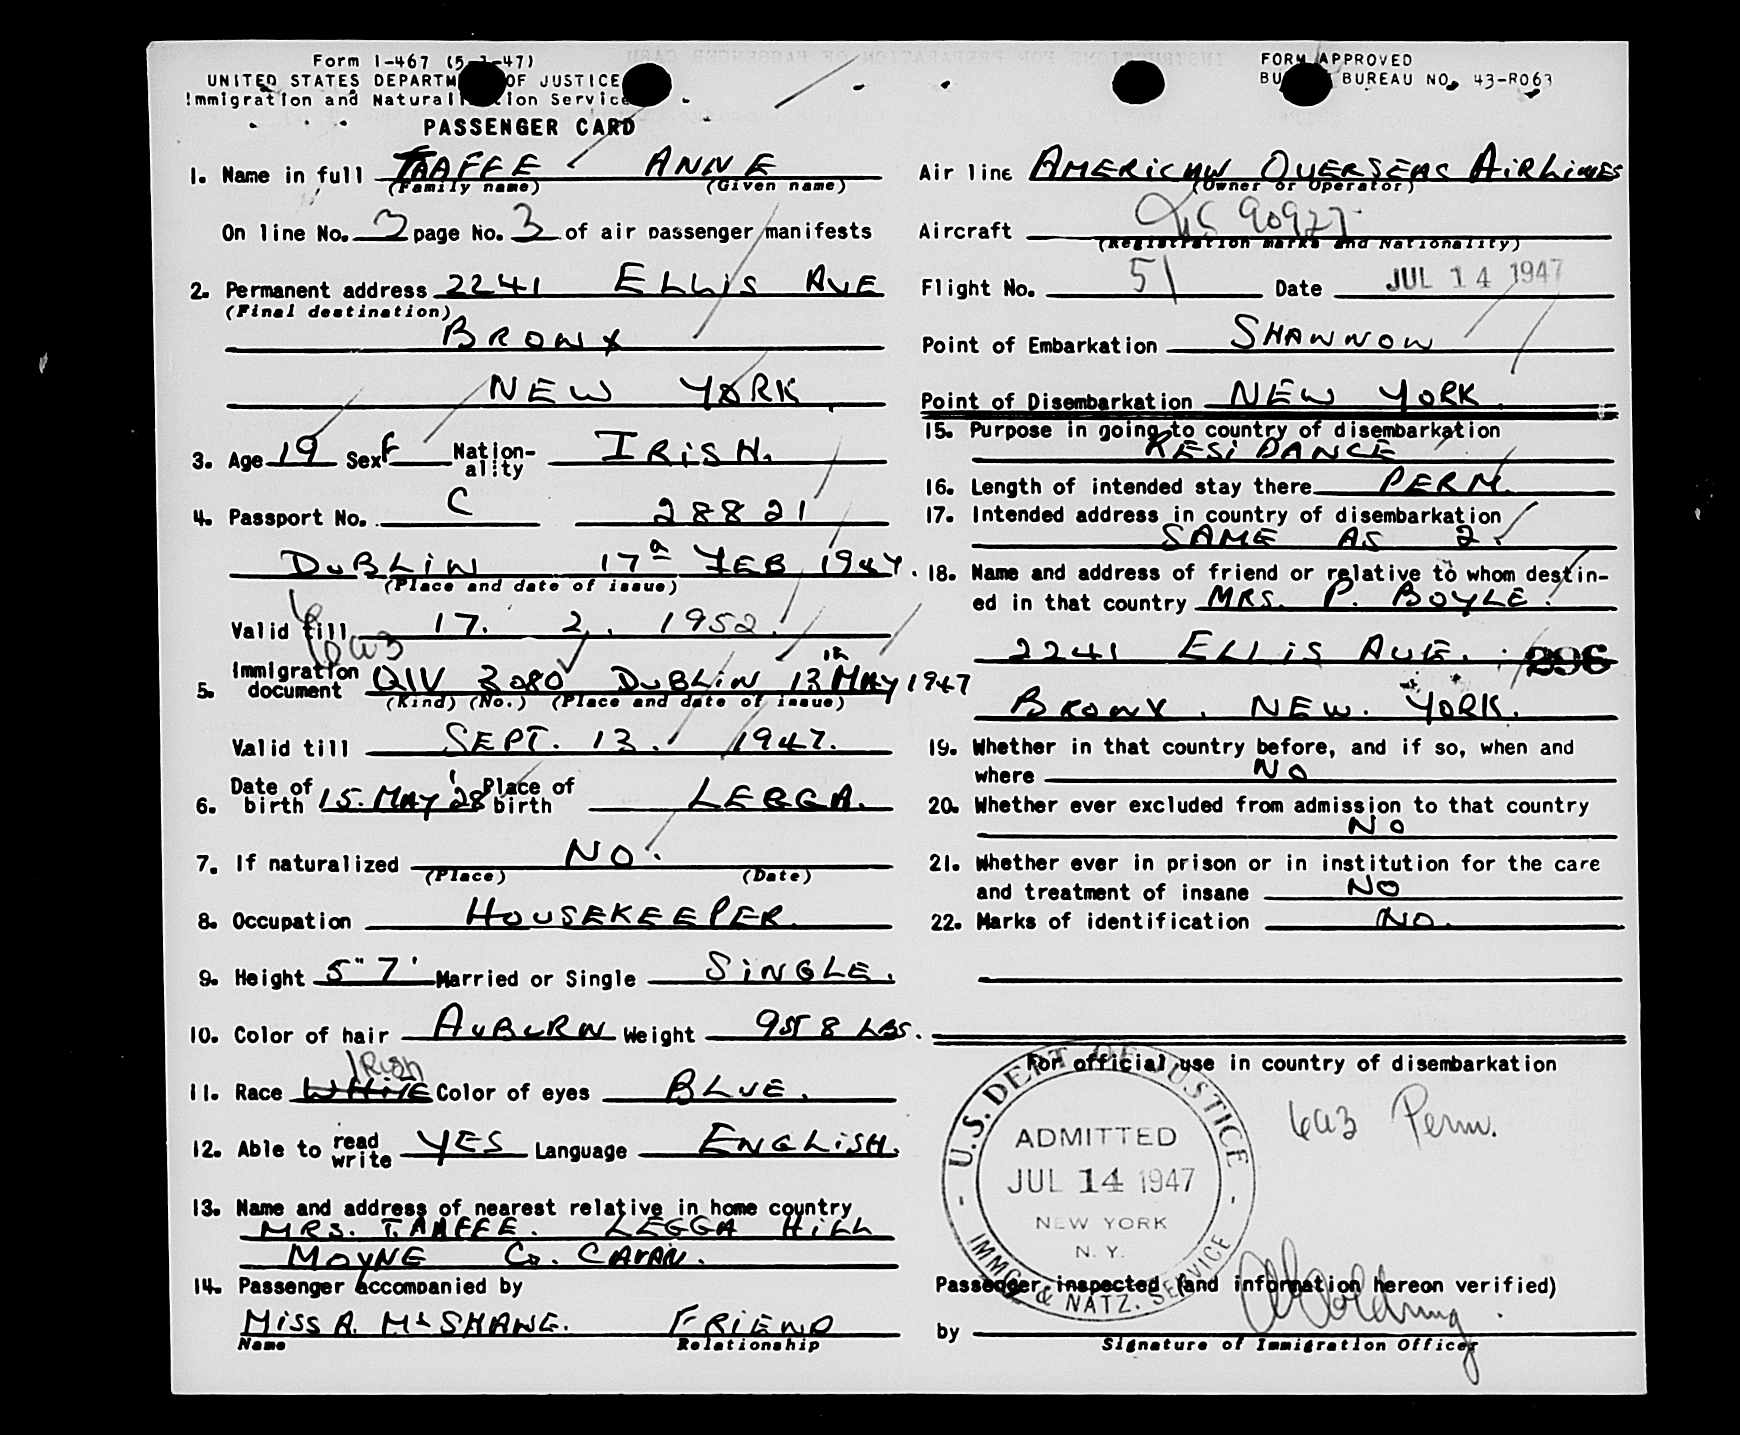 Form I-467 (5-1-47)
UNITED STATES DEPARTM OF JUSTICE
Immigration and Naturali ion Service
FORM APPROVED
BU BUREAU NO. 43-R063
PASSENGER CARD
1. Name in full TAAFFE ANNE
(Family name) (Given name)
On line No. 3 page No. 3 of air passenger manifests
2. Permanent address 2241 ELLIS AVE
(Final destination)
BRONX
NEW YORK
3. Age 19 Sex F Nation-ality IRISH.
4. Passport No. C 28821
DUBLIN 17a FEB 1947.
(Place and date of issue)
Valid till 17. 2. 1952.
6a3
5. Immigration document QIV 3080 DUBLIN 13th MAY 1947
(Kind) (No.) (Place and date of issue)
Valid till SEPT. 13. 1947.
6. Date of birth 15. MAY '28 Place of birth LEGGA.
7. If naturalized NO.
(Place) (Date)
8. Occupation HOUSEKEEPER.
9. Height 5" 7' Married or Single SINGLE.
10. Color of hair AUBURN Weight 9ST 8 LBS.
11. Race WHITE Irish Color of eyes BLUE.
12. Able to read write YES Language ENGLISH.
13. Name and address of nearest relative in home country
MRS. TAAFFE. LEGGA HILL
MOYNE Co. CAVAN.
14. Passenger accompanied by
MISS A. McSHANE. FRIEND
Name Relationship
Air line AMERICAN OVERSEAS AIRLINES
(Owner or Operator)
Aircraft US 90927
(Registration marks and Nationality)
Flight No. 51 Date JUL 14 1947
Point of Embarkation SHANNON
Point of Disembarkation NEW YORK.
15. Purpose in going to country of disembarkation
RESIDANCE
16. Length of intended stay there PERM.
17. Intended address in country of disembarkation
SAME AS 2.
18. Name and address of friend or relative to whom destin-
ed in that country MRS. P. BOYLE.
2241 ELLIS AVE. 296
BRONX. NEW. YORK.
19. Whether in that country before, and if so, when and
where NO
20. Whether ever excluded from admission to that country
NO
21. Whether ever in prison or in institution for the care
and treatment of insane NO
22. Marks of identification NO.
For official use in country of disembarkation
U.S. DEPT OF JUSTICE
ADMITTED
JUL 14 1947
NEW YORK
N. Y.
IMMG & NATZ. SERVICE
6a3 Perm.
Passenger inspected (and information hereon verified)
by
Signature of Immigration Officer